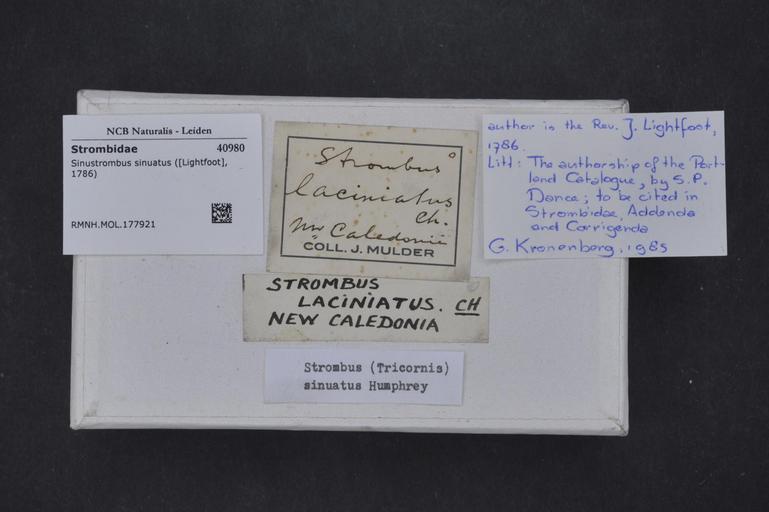 NCB Naturalis - Leiden
Strombidae 40980
Sinustrombus sinuatus ([Lightfoot],
1786)
RMNH.MOL.177921
Strombus
laciniatus
Ch.
Nw Caledonië
COLL. J. MULDER
author is the Rev. J. Lightfoot,
1786.
Litt: The authorship of the Port-
land Catalogue, by S.P.
Dance; to be cited in
Strombidae, Addenda
and Corrigenda
G. Kronenberg, 1985
STROMBUS
LACINIATUS. CH
NEW CALEDONIA
Strombus (Tricornis)
sinuatus Humphrey